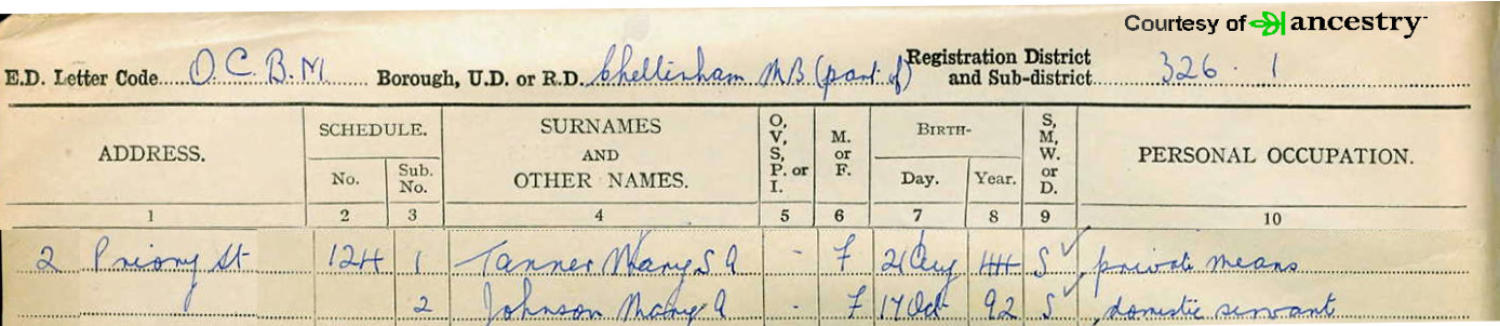 Courtesy of ancestry
E.D. Letter Code O.C.B.M. Borough, U.D. or R.D. Cheltenham M.B. (part of) Registration District and Sub-district 326 . 1
ADDRESS. SCHEDULE. No. Sub. No. SURNAMES AND OTHER NAMES. O, V, S, P. or I. M. or F. BIRTH- Day. Year. S, M, W. or D. PERSONAL OCCUPATION.
1 2 3 4 5 6 7 8 9 10
2 Priory St 124 1 Tanner Mary S A - F 21 Aug 44 S private means
2 Johnson Mary A - F 17 Oct 92 S domestic servant